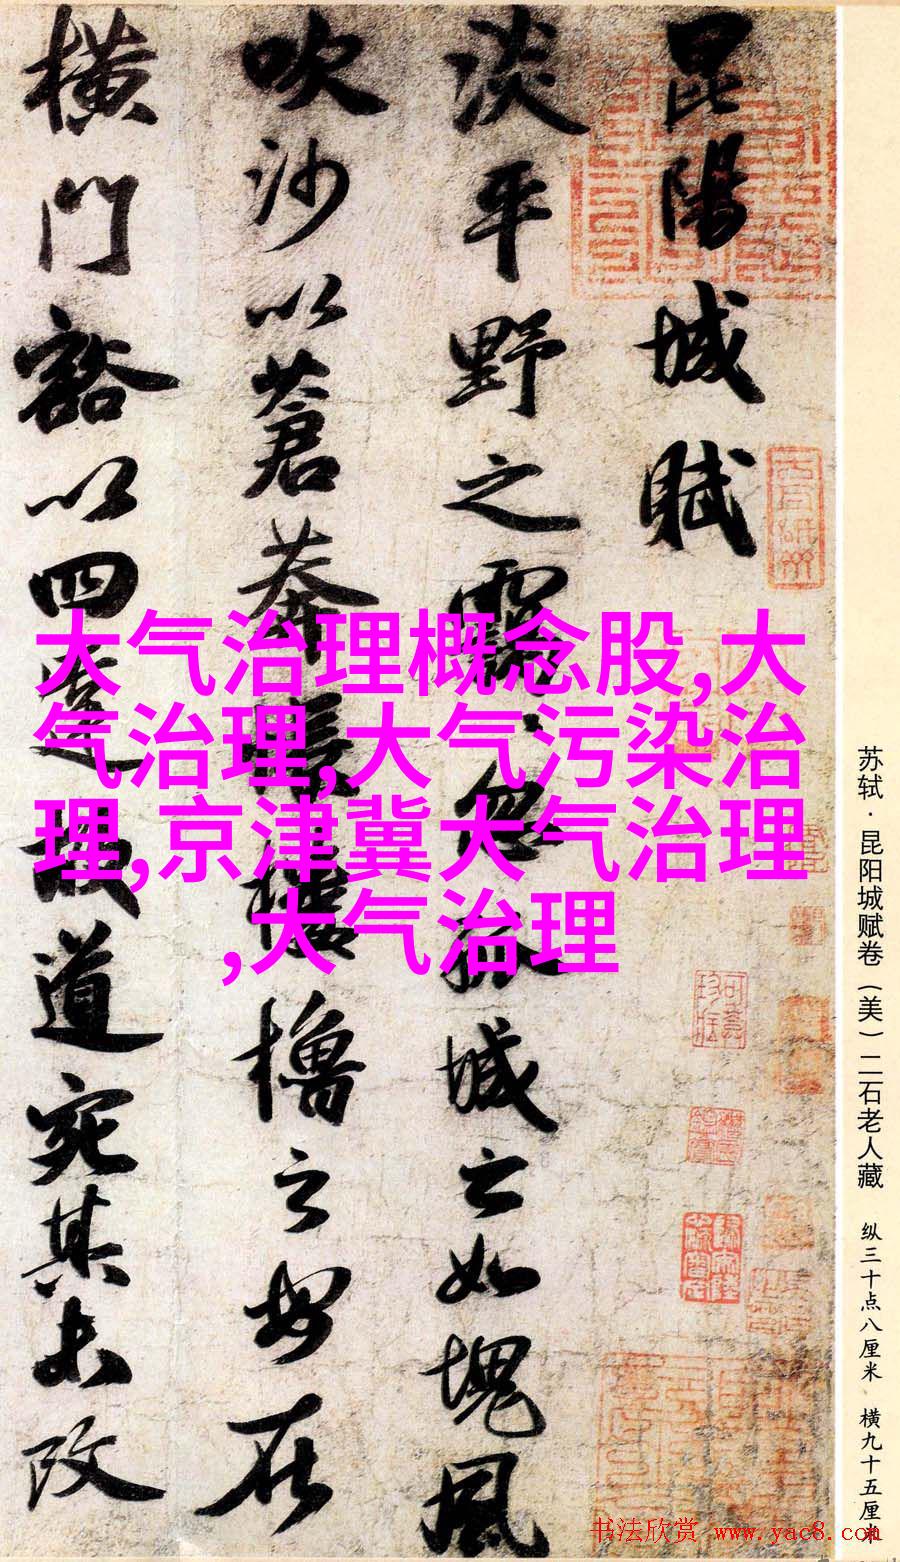 昆陽城賦
淡平野之靄〻忽孤城之如塊風
吹沙以蒼莽悵樓櫓之安在
橫門豁以四達故道宛其未改
大气治理概念股,大
气治理,大气污染治
理,京津冀大气治理
,大气治理
苏轼·昆阳城赋卷（美）二石老人藏 纵三十点八厘米 横九十五厘米
书法欣赏 www.yac8.com